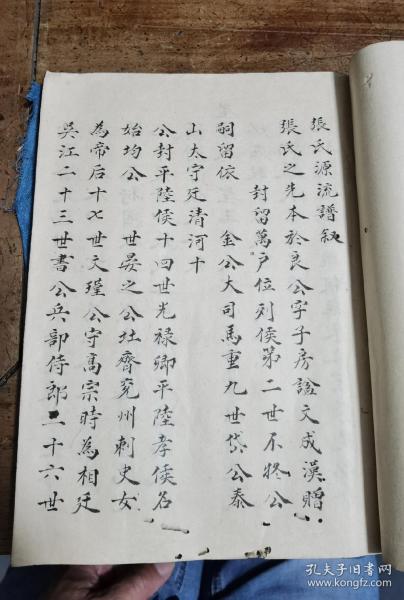 張氏源流譜叙
張氏之先本於良公字子房諡文成漢贈
封留萬户位列侯第二世不疑公
嗣留依 金公大司馬重九世岱公泰
山太守迁清河十
公封平陸侯十四世光禄卿平陸孝侯名
始均公 世晏之公北齊兖州刺史女
為帝后十七世文瓘公守高宗時為相迁
吳江二十三世書公兵部侍郎二十六世
孔夫子旧书网
www.kongfz.com